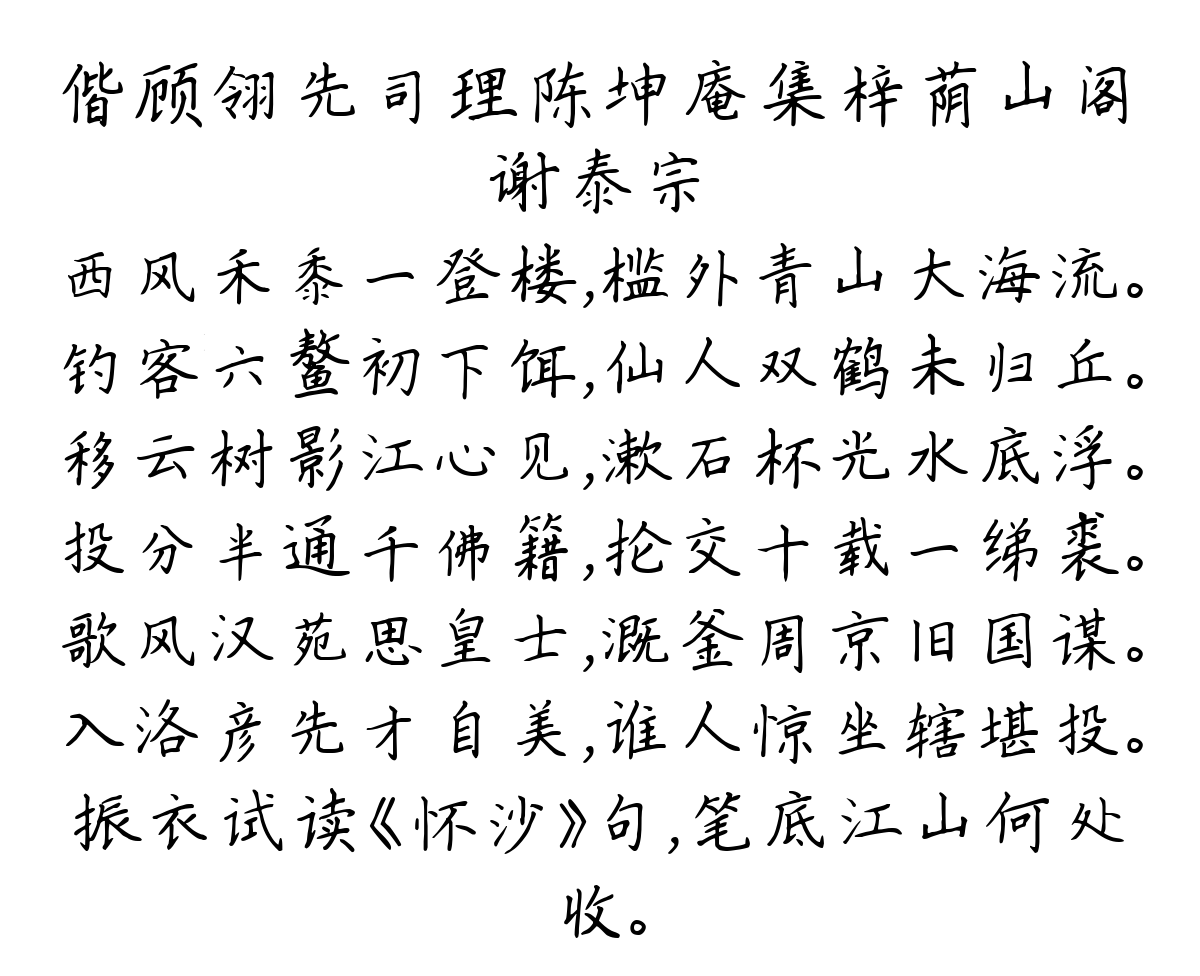 偕顾翎先司理陈坤庵集梓荫山阁
谢泰宗
西风禾黍一登楼,槛外青山大海流。
钓客六鳌初下饵,仙人双鹤未归丘。
移云树影江心见,漱石杯光水底浮。
投分半通千佛籍,抡交十载一绨裘。
歌风汉苑思皇士,溉釜周京旧国谋。
入洛彦先才自美,谁人惊坐辖堪投。
振衣试读《怀沙》句,笔底江山何处
收。